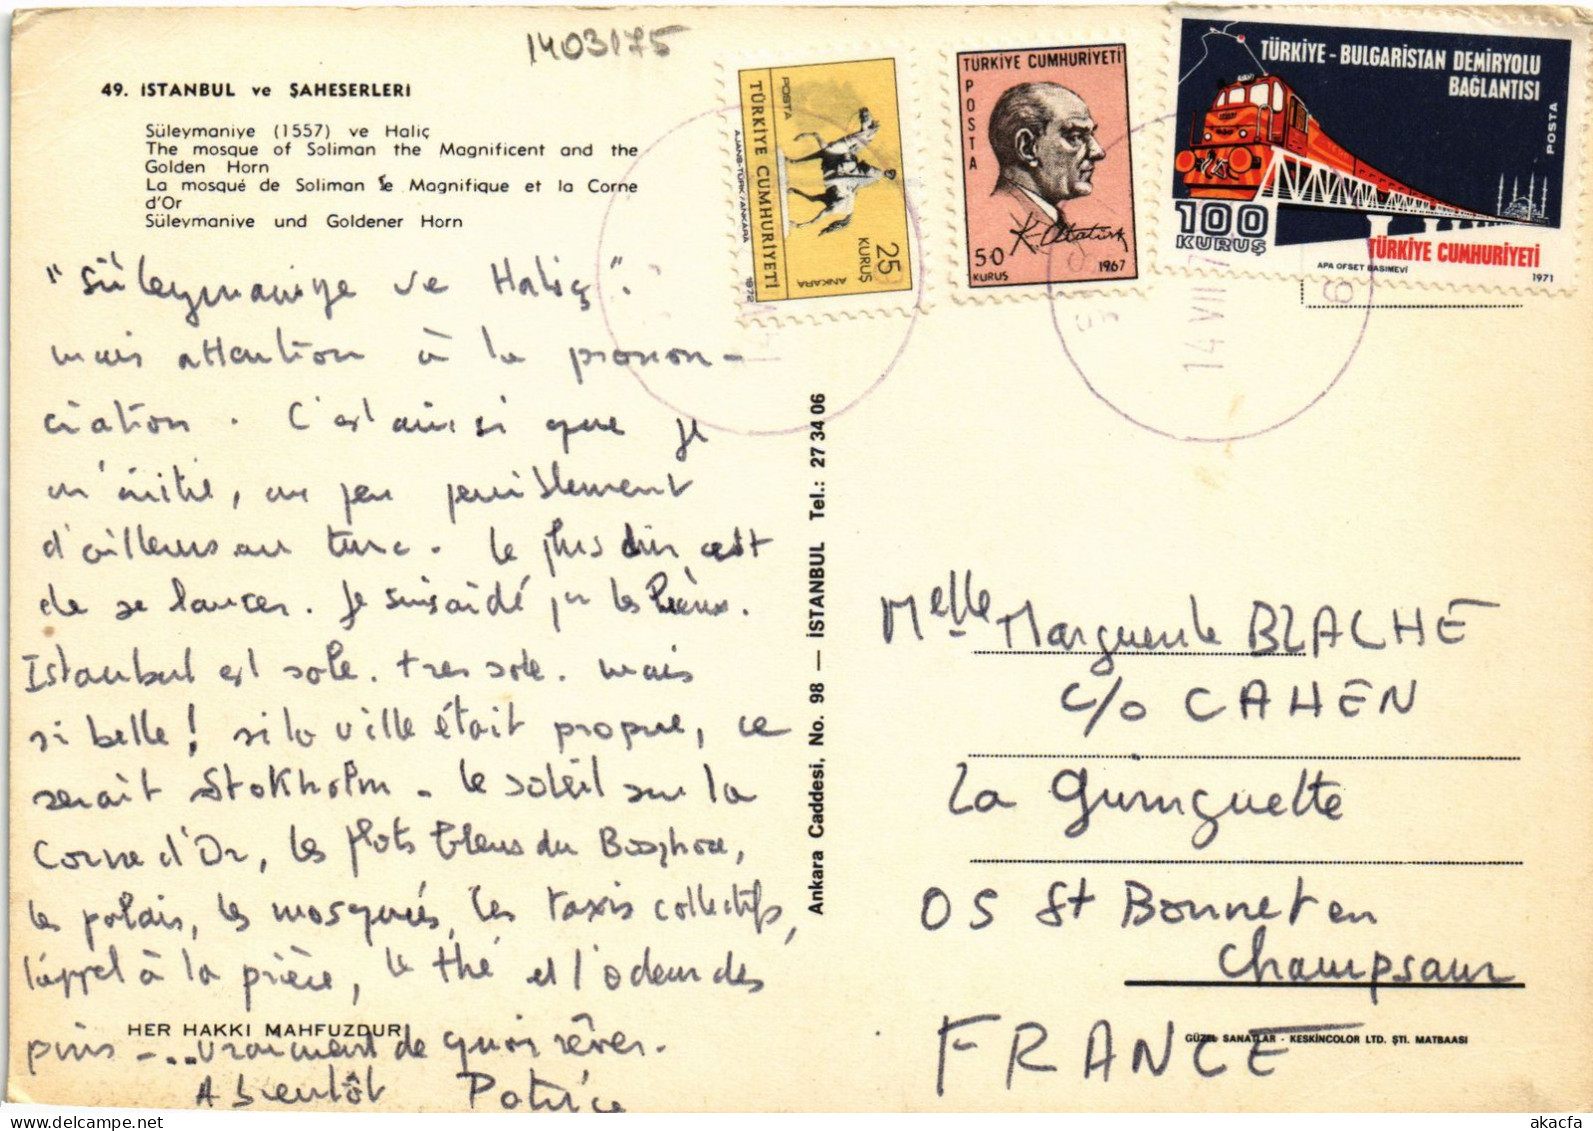 1403175
49. İSTANBUL ve ŞAHESERLERİ
Süleymaniye (1557) ve Haliç
The mosque of Soliman the Magnificent and the
Golden Horn
La mosqué de Soliman le Magnifique et la Corne
d'Or
Süleymaniye und Goldener Horn
"Süleymaniye ve Haliç".
mais attention à la pronon-
ciation. C'est ainsi que je
m'initie, un peu péniblement
d'ailleurs au turc. Le plus dur c'est
de se lancer. Je suis aidé par les
Istanbul est sale. très sale. mais
si belle! si la ville était propre, ce
serait Stokholm. Le soleil sur la
Corne d'Or, les flots bleus du Bosphore,
les palais, les mosquées, les taxis collectifs,
l'appel à la prière, le thé et l'odeur des
pins -... vraiment de quoi rêver.
A bientôt Patrice
HER HAKKI MAHFUZDUR
Ankara Caddesi, No. 98 — İSTANBUL Tel.: 27 34 06
POSTA
TÜRKİYE CUMHURİYETİ
AJANS-TÜRK/ANKARA
1972
ANKARA
25
KURUŞ
TÜRKİYE CUMHURİYETİ
POSTA
K. Atatürk
50
KURUŞ
1967
TÜRKİYE - BULGARİSTAN DEMİRYOLU
BAĞLANTISI
POSTA
100
KURUŞ
TÜRKİYE CUMHURİYETİ
APA OFSET BASIMEVİ
1971
14 VII 7
Melle Marguerite BLACHE
c/o CAHEN
La Guinguette
05 St Bonnet en
Champsaur
FRANCE
GÜZEL SANATLAR - KESKİNCOLOR LTD. ŞTİ. MATBAASI
akacfa.delcampe.net